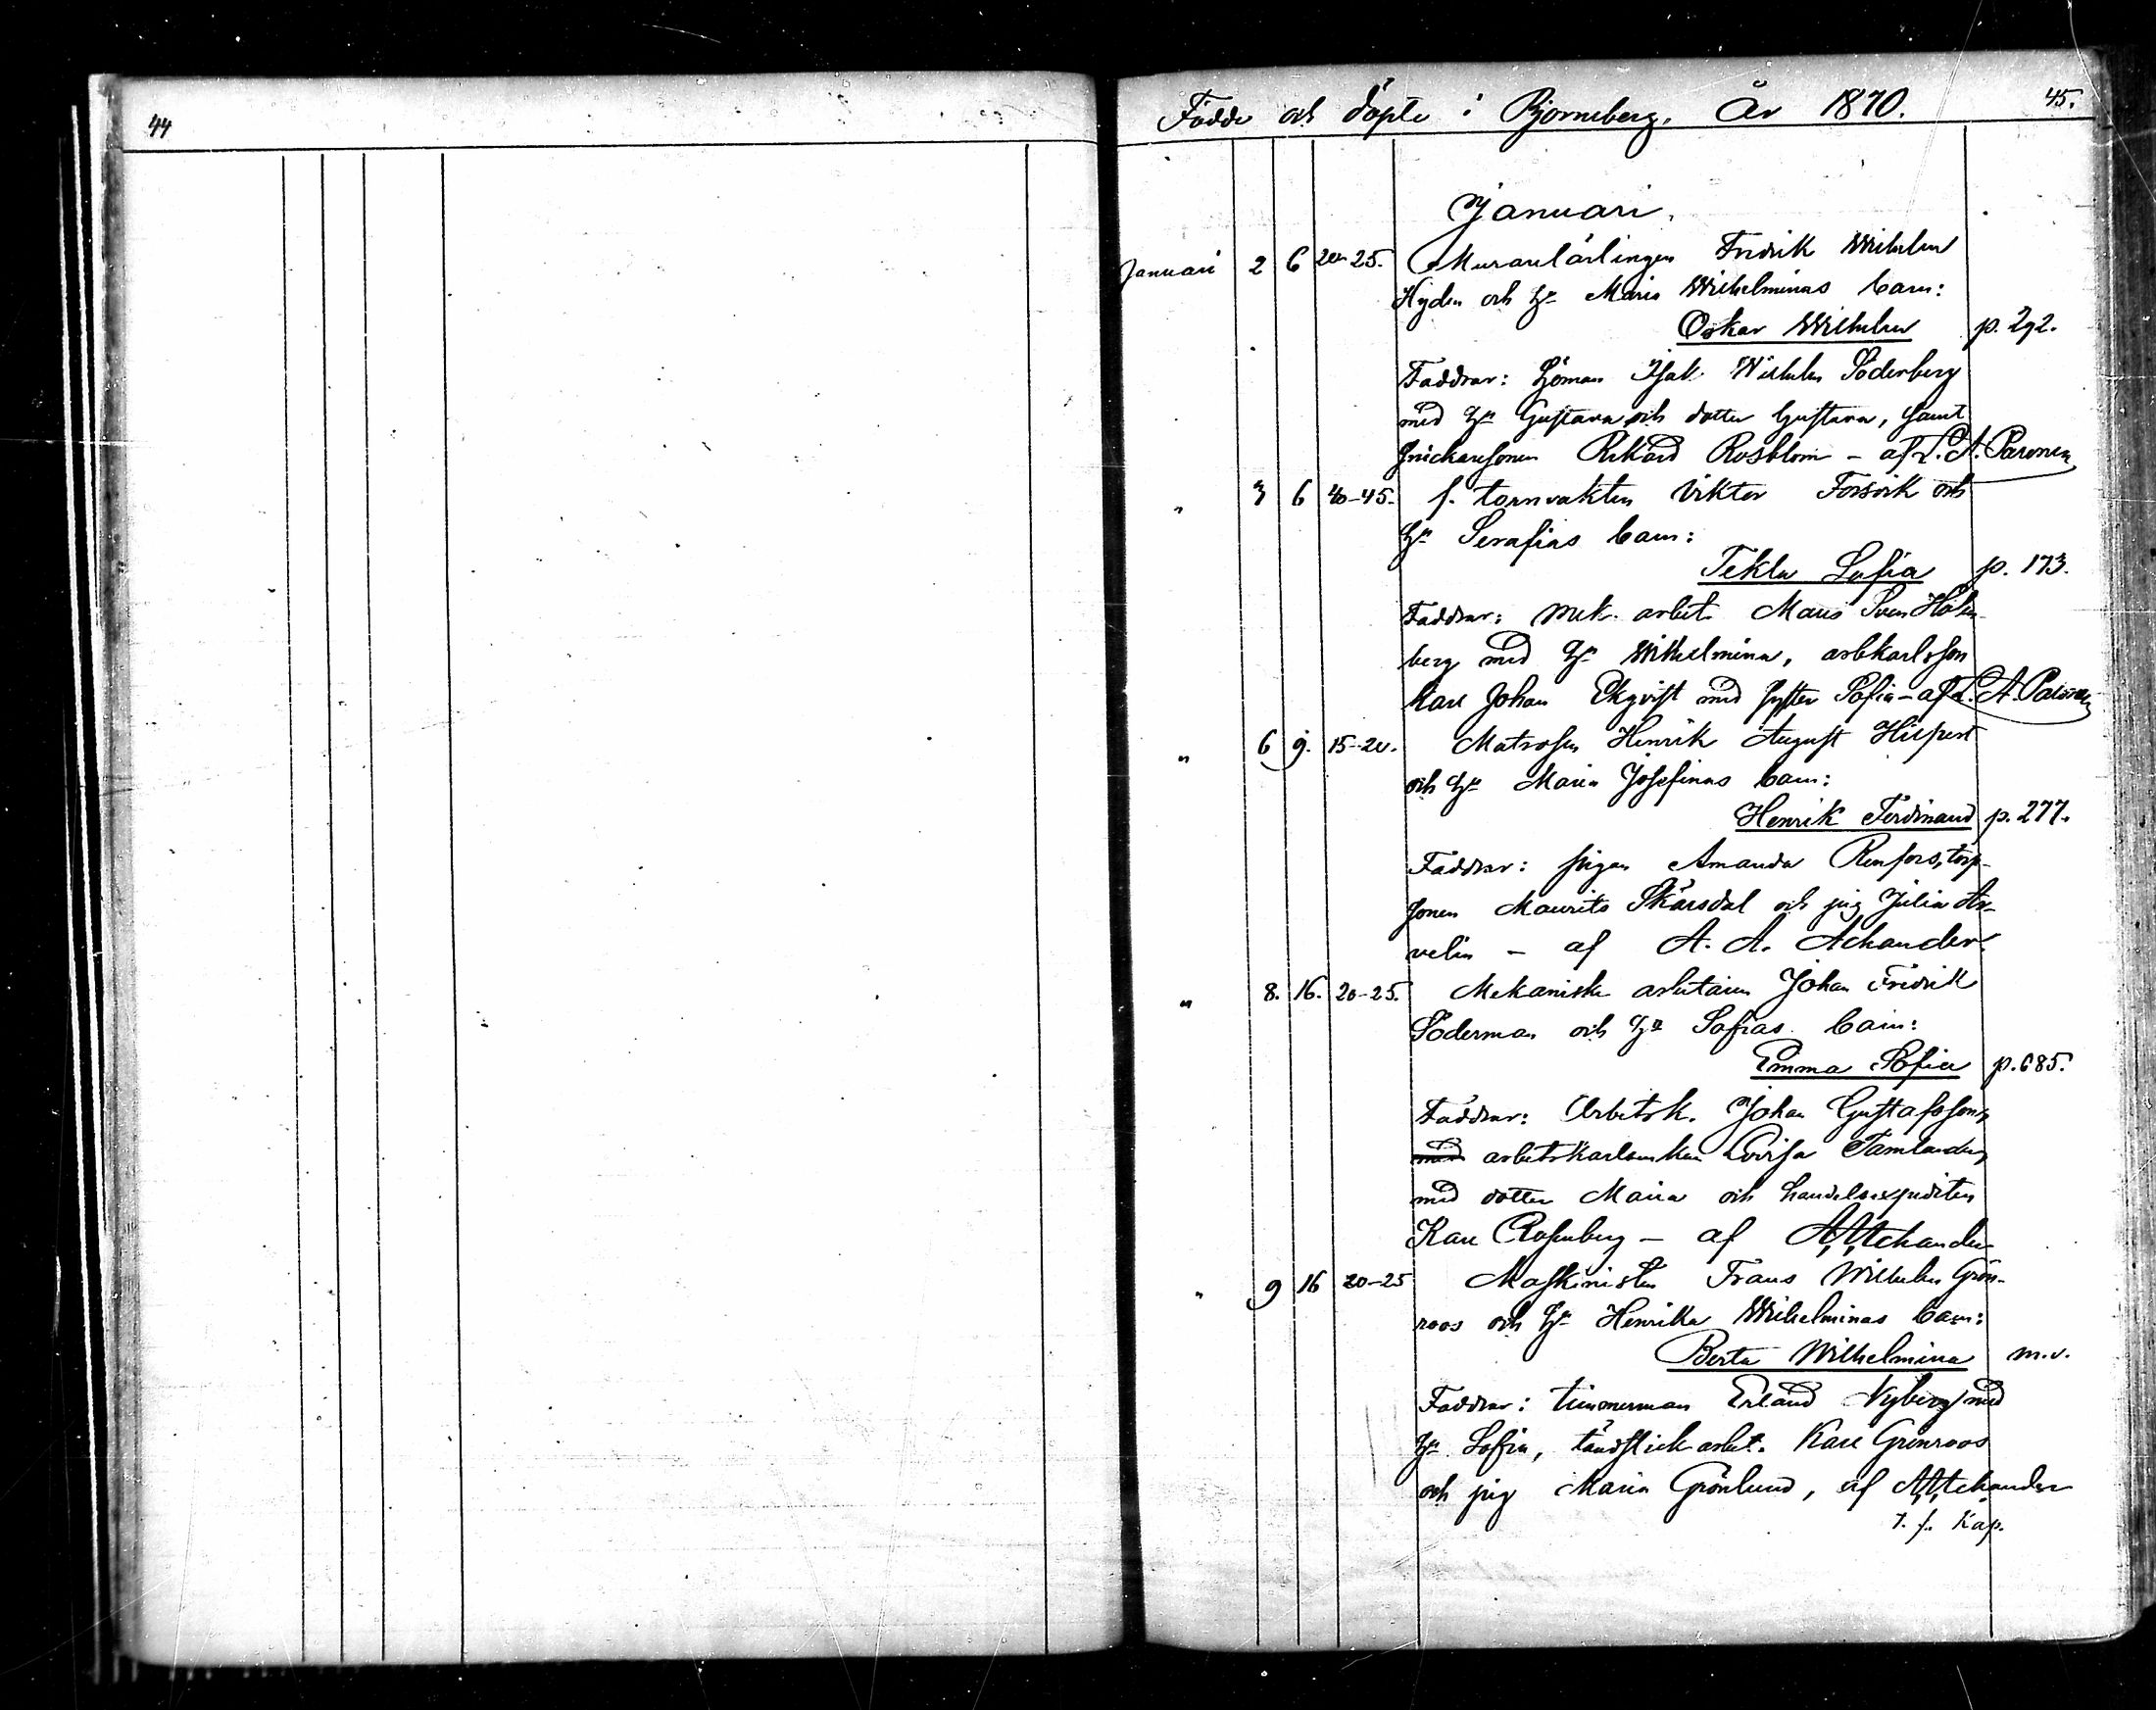 44
Födde och döpte i Björneborg. År 1870. 45.
Januari.
Januari 2 6 20-25. Murarelärlingen Fredrik Wilhelm
Hyden och h. Maria Wilhelminas barn:
Oskar Wilhelm p. 292.
Faddrar: Sjöman Isak Wilhelm Söderberg
med h. Gustava och dotter Gustava, samt
snickaresonen Rikard Rosblom – af L. A. Paronen
" 3 6 40-45. f. tornvakten Viktor Forsvik och
h. Serafias barn:
Tekla Sofia p. 173.
Faddrar: mek. arbet. Sven Holm-
berg med h. Wilhelmina, arbkarlsson
Karl Johan Ekqvist med syster Sofia – af L. A. Paronen
" 6 9. 15-20. Matrosen Henrik August
och h. Maria Josefinas barn:
Henrik Ferdinand p. 277.
Faddrar: pigan Amanda Renfors, torp-
sonen Maurits Skärsdal och pig Julia Ar-
velin – af A. A. Achander
" 8. 16. 20-25. Mekaniske arbetaren Johan Fredrik
Söderman och h. Sofias barn:
Emma Sofia p. 685.
Faddrar: Arbetsk. Johan Gustafsson,
med arbetskarlsenkan Lovisa Tamlander,
med dotter Maria och handelsexpediten
Karl Rosenberg – af A, A, Achander
" 9 16 20-25 Maskinisten Frans Wilhelm Grön-
roos och h. Henrika Wilhelminas barn:
Berta Wilhelmina m.v.
Faddrar: timmerman Erland Nyberg med
h. Sofia, tändstick arbet. Karl Grönroos
och pig Maria Grönlund, af A, A, Achander
t. f. Kap.